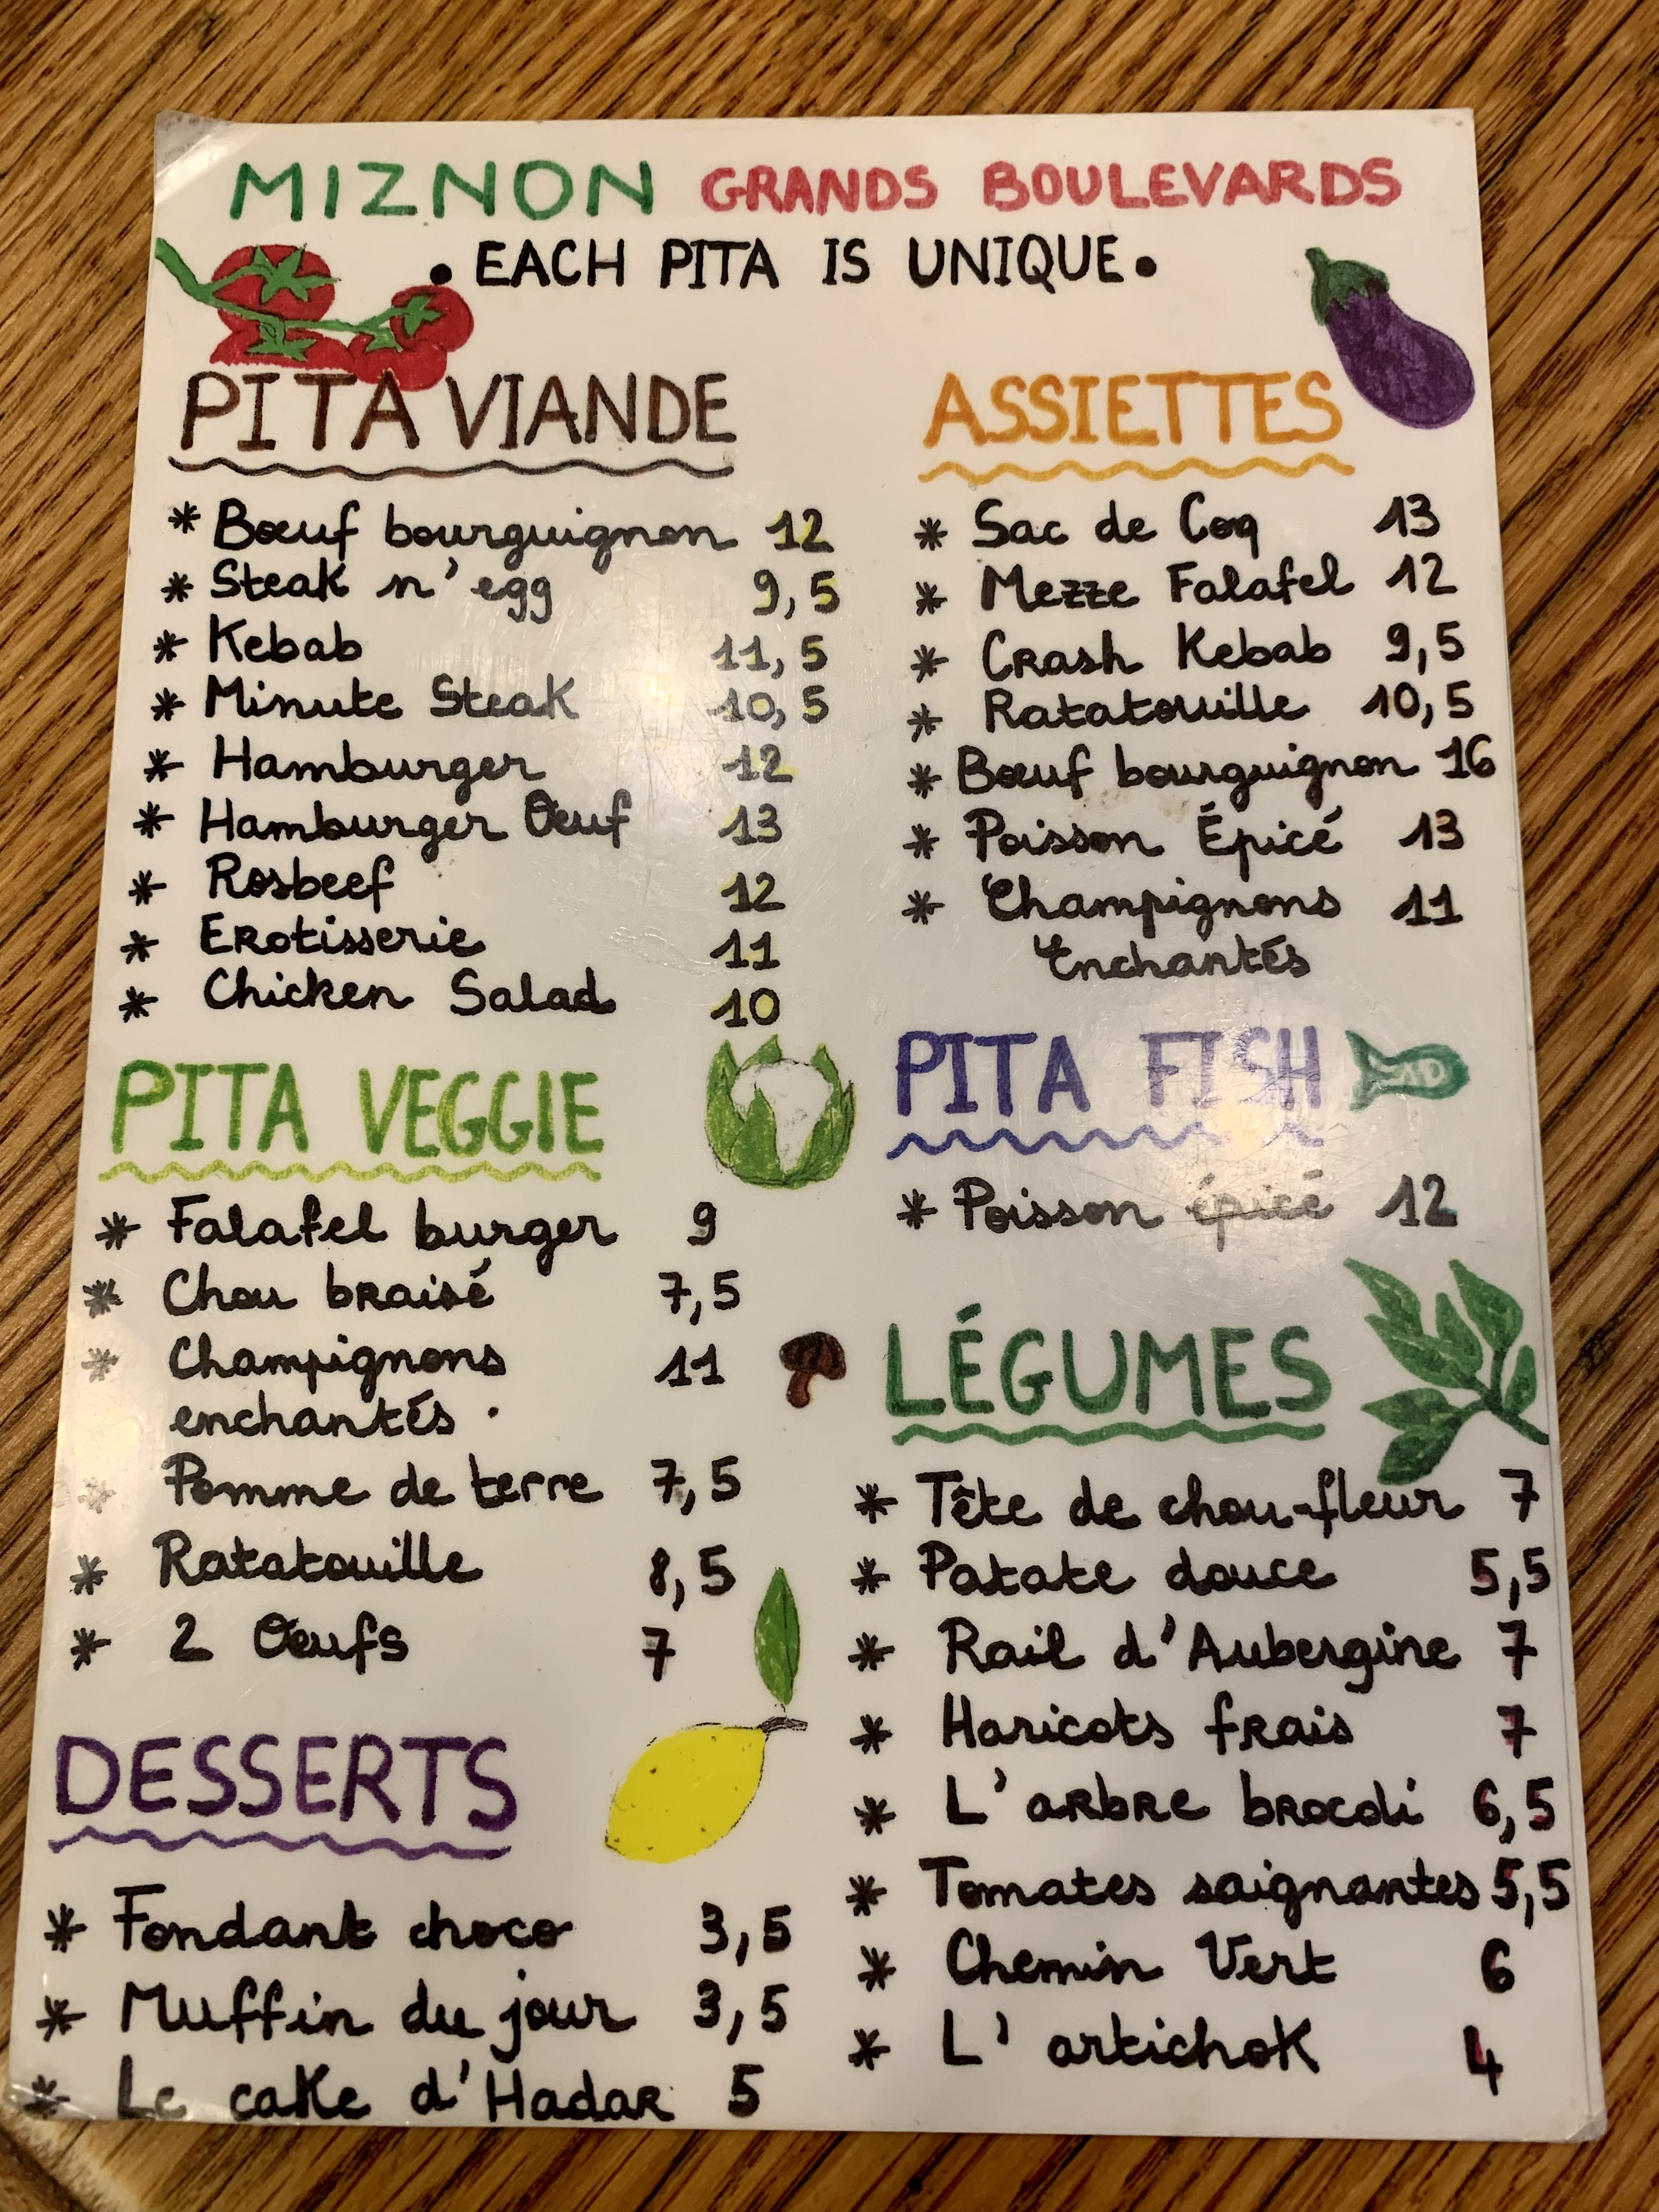 MIZNON GRANDS BOULEVARDS
• EACH PITA IS UNIQUE •
PITA VIANDE
* Bœuf bourguignon 12
* Steak n' egg 9,5
* Kebab 11,5
* Minute Steak 10,5
* Hamburger 12
* Hamburger Œuf 13
* Rosbeef 12
* ERotisserie 11
* Chicken Salad 10
PITA VEGGIE
* Falafel burger 9
* Chou braisé 7,5
* Champignons 11
enchantés .
* Pomme de terre 7,5
* Ratatouille 8,5
* 2 Œufs 7
DESSERTS
* Fondant choco 3,5
* Muffin du jour 3,5
* Le cake d'Hadar 5
ASSIETTES
* Sac de Coq 13
* Mezze Falafel 12
* Crash Kebab 9,5
* Ratatouille 10,5
* Bœuf bourguignon 16
* Poisson Épicé 13
* Champignons 11
Enchantés
PITA FISH
* Poisson épicé 12
LÉGUMES
* Tête de chou-fleur 7
* Patate douce 5,5
* Rail d'Aubergine 7
* Haricots frais 7
* L'arbre brocoli 6,5
* Tomates saignantes 5,5
* Chemin Vert 6
* L'artichok 4